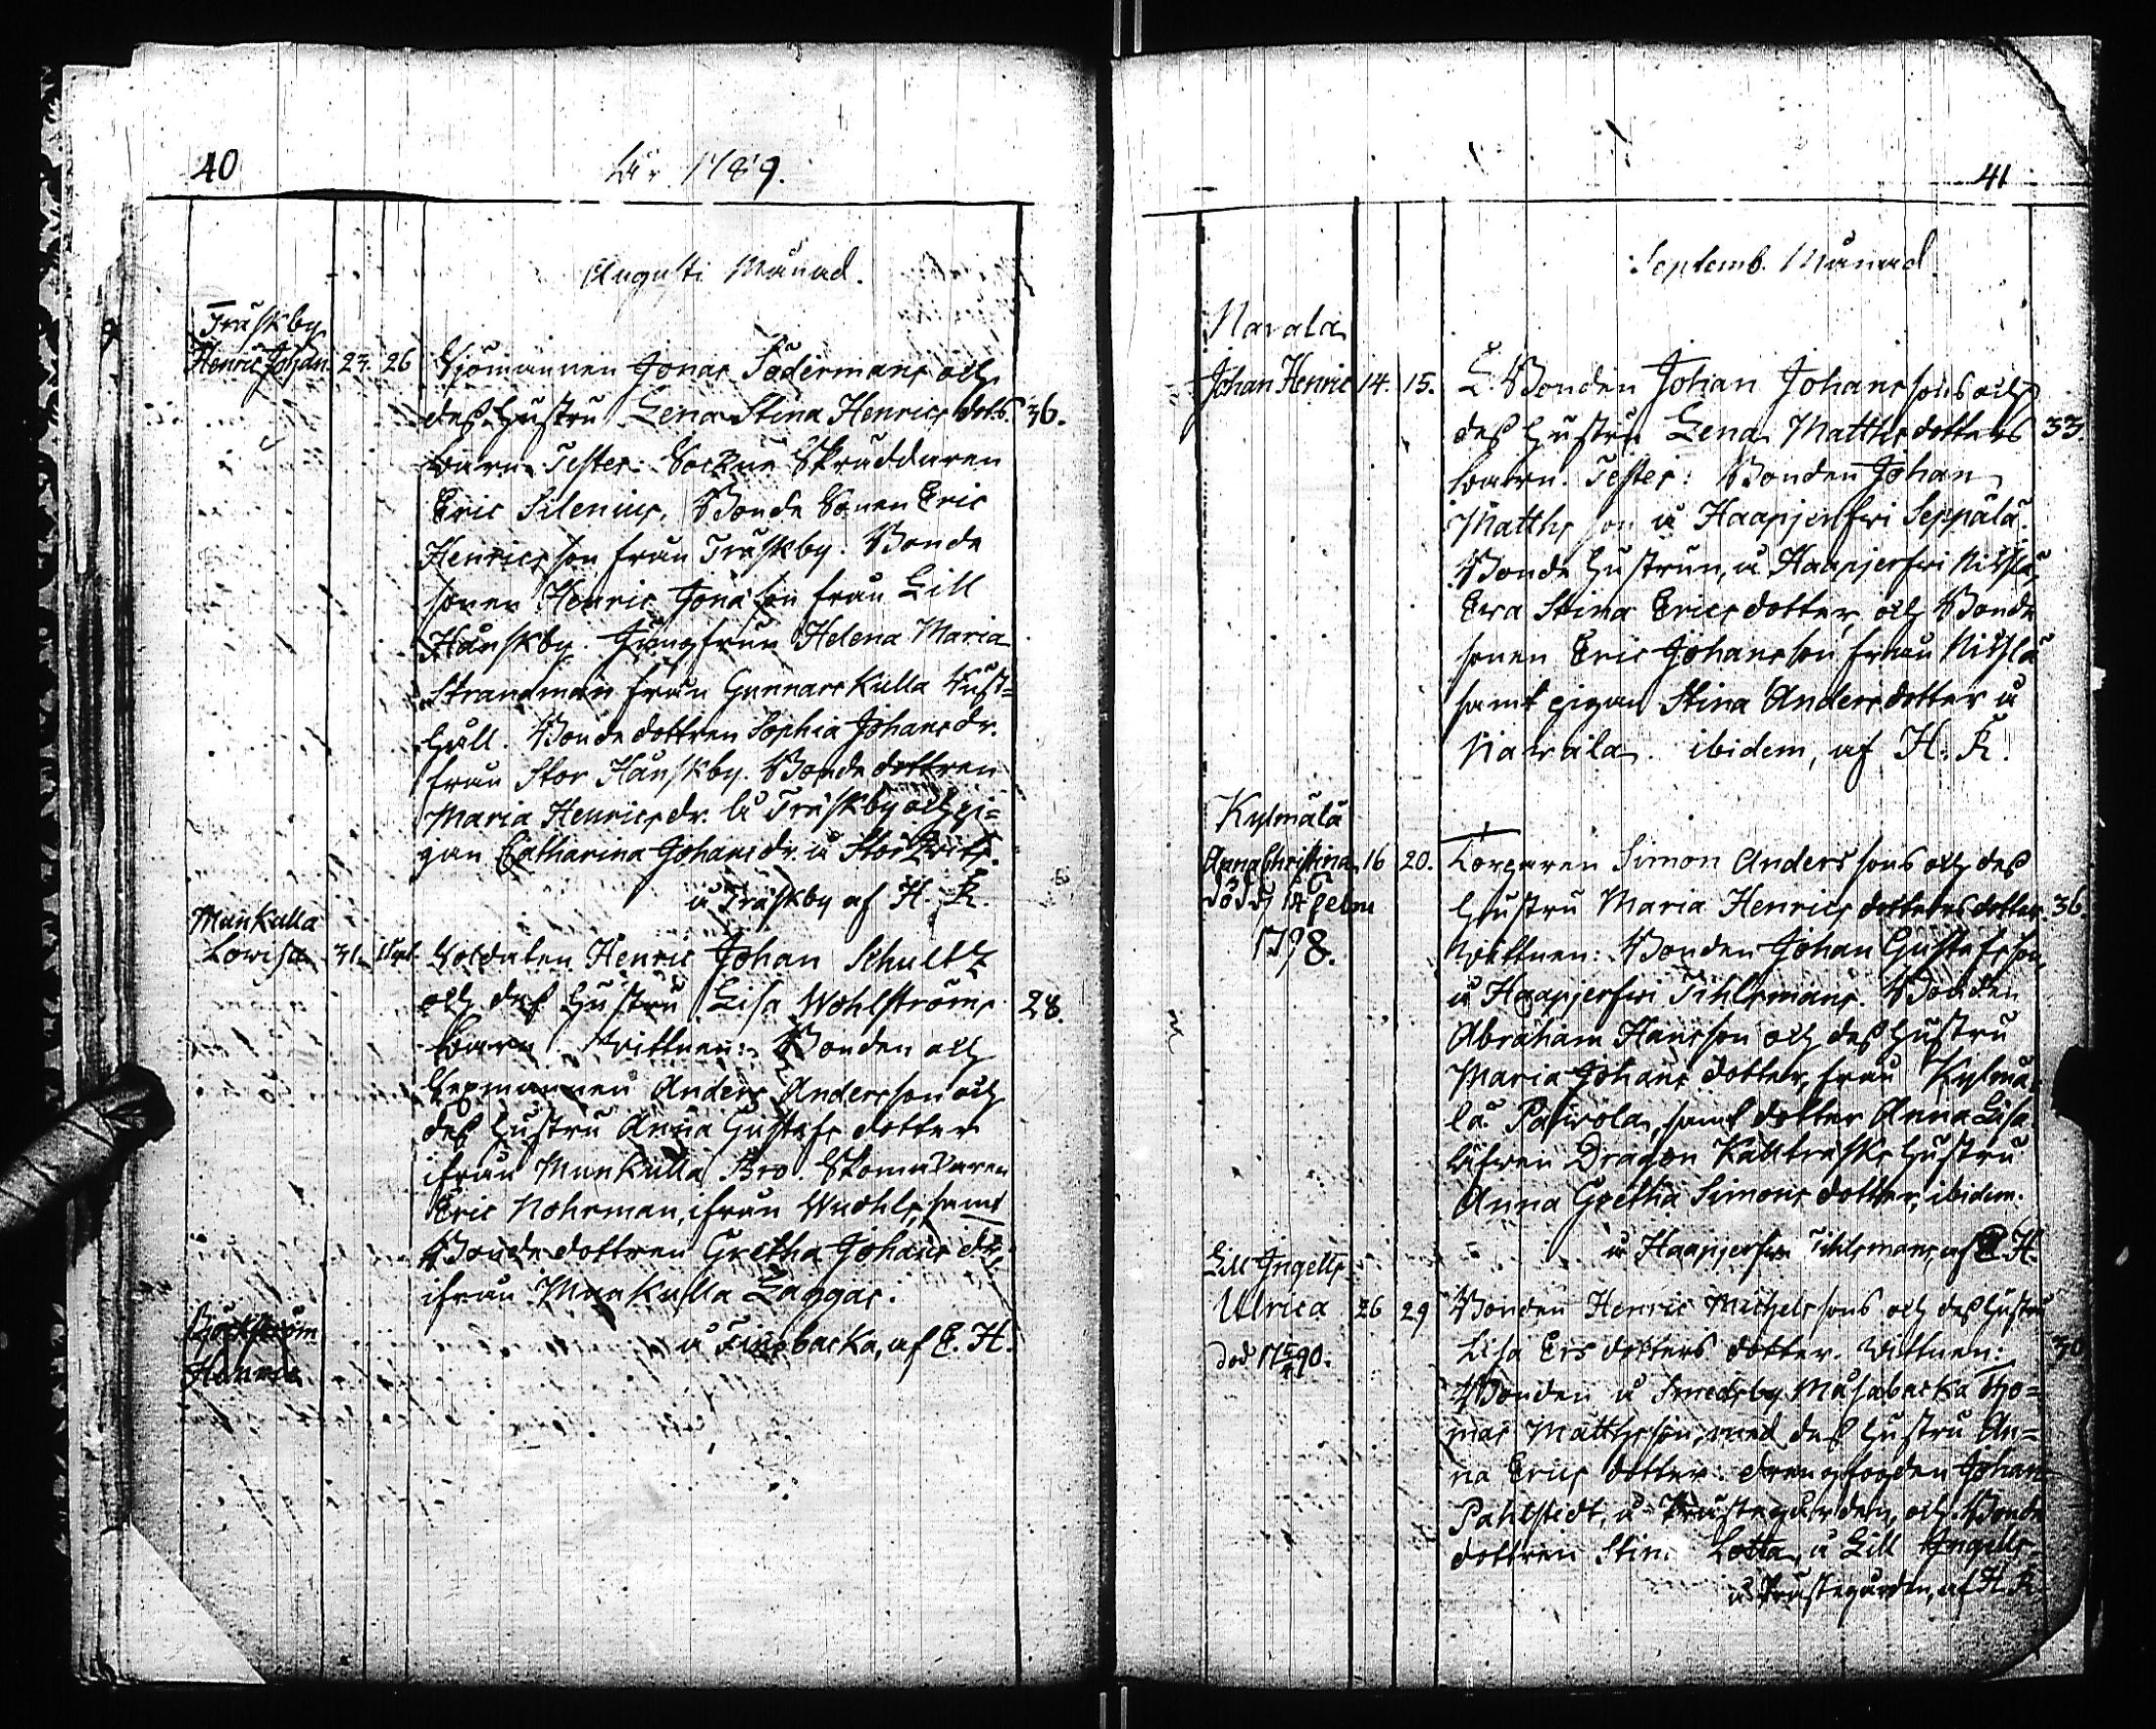 40
År 1789.
Augusti Månad.
Träskby
Henric Johan. 23. 26 Sjömannen Jonas Södermans och
dess Hustru Lena Stina Henrics dots. 36.
barn. Testes: Sockne Skräddaren
Eric Silenius, Bonde Sonen Eric
Henricsson från Träskby. Bonde
sonen Henric Jönsson från Lill
Hånskby. Jungfrun Helena Maria
Strandman från Gunnarskulla
håll. Bonde dottren Sophia Johansdr.
från Stor Hånskby. Bonde dottren
Maria Henricsdr. å Träskby och pi=
gan Catharina Johansdr. å Stor
å Träskby af H. K.
Munkulla
Lovisa 31. Soldaten Henric Johan Schultz
och dess Hustru Lisa Wohlströms 28.
barn. Vittnen: Bonden och
Sexmannen Anders Andersson och
dess Hustru Anna Gustafs dotter
ifrån Munkulla Bro. Skomakaren
Eric Nohrman, ifrån Wuohls, samt
Bonde dottren Gretha Johans dr.
ifrån Munkulla Laggas.
å Finsbacka, af E. H.
41
Septemb. Månad.
Navala
Johan Henric 14. 15. Bonden Johan Johans sons och
dess Hustru Lena Matths dotters 33.
barn. Testes: Bonden Johan
Matths son å Haapjerfwi Seppälä.
Bonde Hustrun, å Haapjerfwi
Ewa Stina Erics dotter, och Bonde
sonen Eric Johansson från
samt pigan Stina Anders dotter å
Nawala. ibidem, af H. K.
Kylmälä
Anna Christina 16 20. Torparen Simon Anders sons och dess
död
Hustru Maria Henrics dotters dotter 36
1798.
Vittnen: Bonden Johan Gustafsson,
å Haapjerfwi Tihlsmans. Bonden
Abraham Hansson och dess Hustru
Maria Johans dotter, från Kylmä=
lä samt dotter Anna Lisa
Dragon Kallträsks Hustru
Anna Gretha Simons dotter, ibidem.
å Haapjerfwi Tihlsmans, af E H.
Lill Ingells
Ulrica 26 29 Bonden Henric Michels sons och dess Hustru
Lisa Ers dotters dotter. Vittnen: 30
död
Bonden å Smedsby Måsabacka Tho=
mas Matthsson, med dess Hustru An=
na Erics dotter. drengfogden Johan
Pahlstedt, å Prästegården, och Bonde
dottren Stina Lotta, å Lill Ingells
å Prästegården, af H. K.